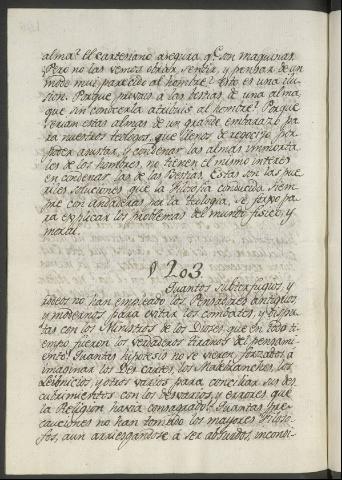 alma? El cartesiano asegura q.e son maquinas.
Pero no las vemos obrar, sentir, y pensar de un
modo muy parecido al hombre? Esto es una ilu-
sion. Porque privais á las bestias de una alma,
que sin conocerla atribuis al hombre? Porque
serian estas almas de un grande embarazo pa-
ra nuestros teologos, que llenos de regocijo por
poder asustar, y condenar las almas inmorta-
les de los hombres, no tienen el mismo interes
en condenar las de las Bestias. Estas son las pue-
riles soluciones que la Filosofia conducida siem-
pre con andaderas por la teologia, se forjó pa-
ra explicar los problemas del mundo fisico, y
moral.
§ 203.
Quantos subterfugios, y
rodeos no han empleado los Pensadores antiguos,
y modernos para evitar los combates, y dispu-
tas con los Ministros de los Dioses, que en todo ti-
empo fueron los verdaderos tiranos del pensami-
ento! Quantas hipotesis no se vieron forzados á
imaginar los Des-cartes, los Malebranches, los
Leibnicios, y otros varios para conciliar sus des-
cubrimientos con los desvarios, y errores que
la Religion havia consagrado! Quantas pre-
cauciones no han tomado los mayores Filoso-
fos, aun arriesgandose á ser absurdos, inconsi-